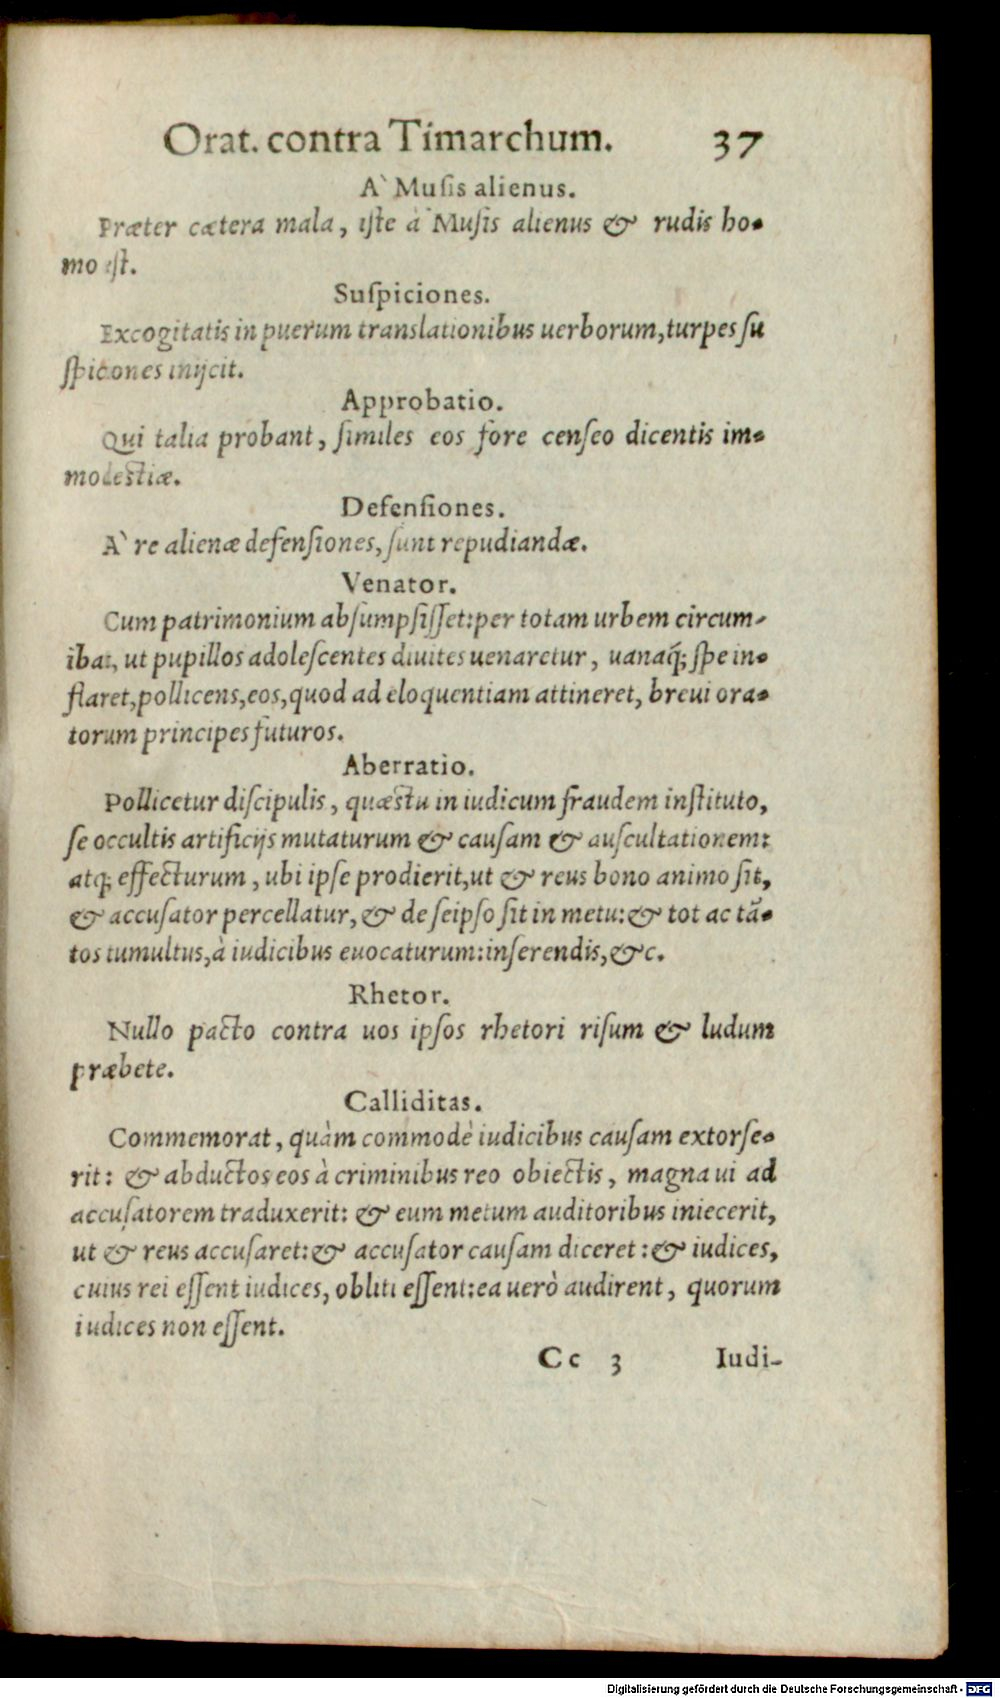 Orat. contra Timarchum. 37
A` Muſis alienus.
Præter cætera mala, iſte à Muſis alienus & rudis ho-
mo eſt.
Suſpiciones.
Excogitatis in puerum translationibus uerborum, turpes ſu
ſpiciones inijcit.
Approbatio.
Qui talia probant, ſimiles eos fore cenſeo dicentis im-
modeſtiæ.
Defenſiones.
A` re alienæ defenſiones, ſunt repudiandæ.
Venator.
Cum patrimonium abſumpſiſſet: per totam urbem circum-
ibat, ut pupillos adoleſcentes diuites uenaretur, uanaq́; ſpe in-
flaret, pollicens, eos, quod ad eloquentiam attineret, breui ora-
torum principes futuros.
Aberratio.
Pollicetur diſcipulis, quæſtu in iudicum fraudem inſtituto,
ſe occultis artificijs mutaturum & cauſam & auſcultationem:
atq; effecturum, ubi ipſe prodierit, ut & reus bono animo ſit,
& accuſator percellatur, & de ſeipſo ſit in metu: & tot ac tã-
tos tumultus, à iudicibus euocaturum: inſerendis, &c.
Rhetor.
Nullo pacto contra uos ipſos rhetori riſum & ludum
præbete.
Calliditas.
Commemorat, quàm commodè iudicibus cauſam extorſe-
rit: & abductos eos à criminibus reo obiectis, magna ui ad
accuſatorem traduxerit: & eum metum auditoribus iniecerit,
ut & reus accuſaret: & accuſator cauſam diceret: & iudices,
cuius rei eſſent iudices, obliti eſſent: ea uerò audirent, quorum
iudices non eſſent.
Cc 3 Iudi-
Digitalisierung gefördert durch die Deutsche Forschungsgemeinschaft - DFG